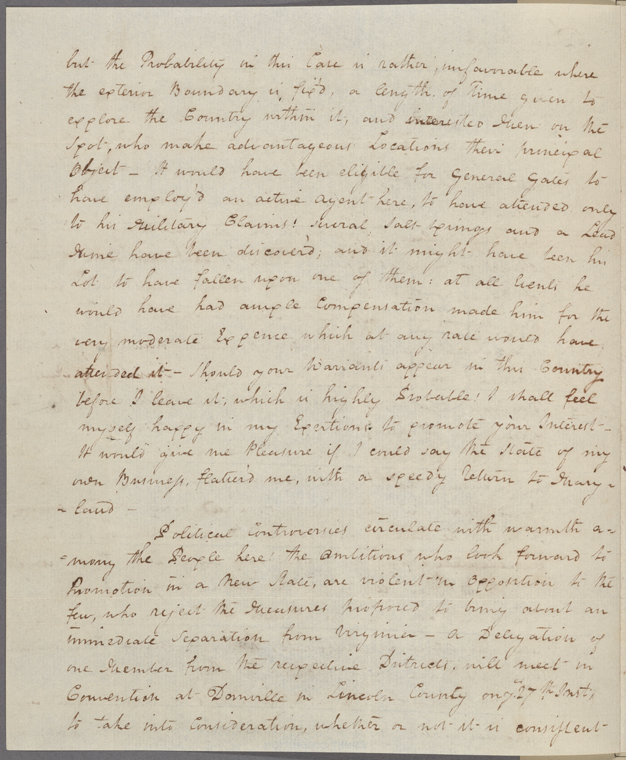 but the Probability in this Case is rather unfavorable where
the exterior Boundary is fix'd, a length of Time given to
explore the Country within it, and interested Men on the
Spot, who make advantageous Locations their principal
Object – It would have been eligible for General Gates to
have employ'd an active Agent here, to have attended only
to his Military Claims! Several Salt Springs and a Lead
Mine have been discover'd; and it might have been his
Lot to have fallen upon one of them: at all Events he
would have had ample Compensation made him for the
very moderate Expence which at any rate would have
attended it – Should your Warrants appear in this Country
before I leave it, which is highly Probable! I shall feel
myself happy in my Exertions to promote your Interest –
It would give me Pleasure if I could say the State of my
own Business, flatter'd me, with a speedy Return to Mary-
-land –
Political Controversies circulate with warmth a-
-mong the People here: the Ambitious who look forward to
Promotion in a New State, are violent in Opposition to the
few, who reject the Measures proposed to bring about an
immediate Separation from Virginia – A Delegation of
one Member from the respective Districts, will meet in
Convention at Danville in Lincoln County on ye 27th Inst,
to take into Consideration, whether or not it is consistent